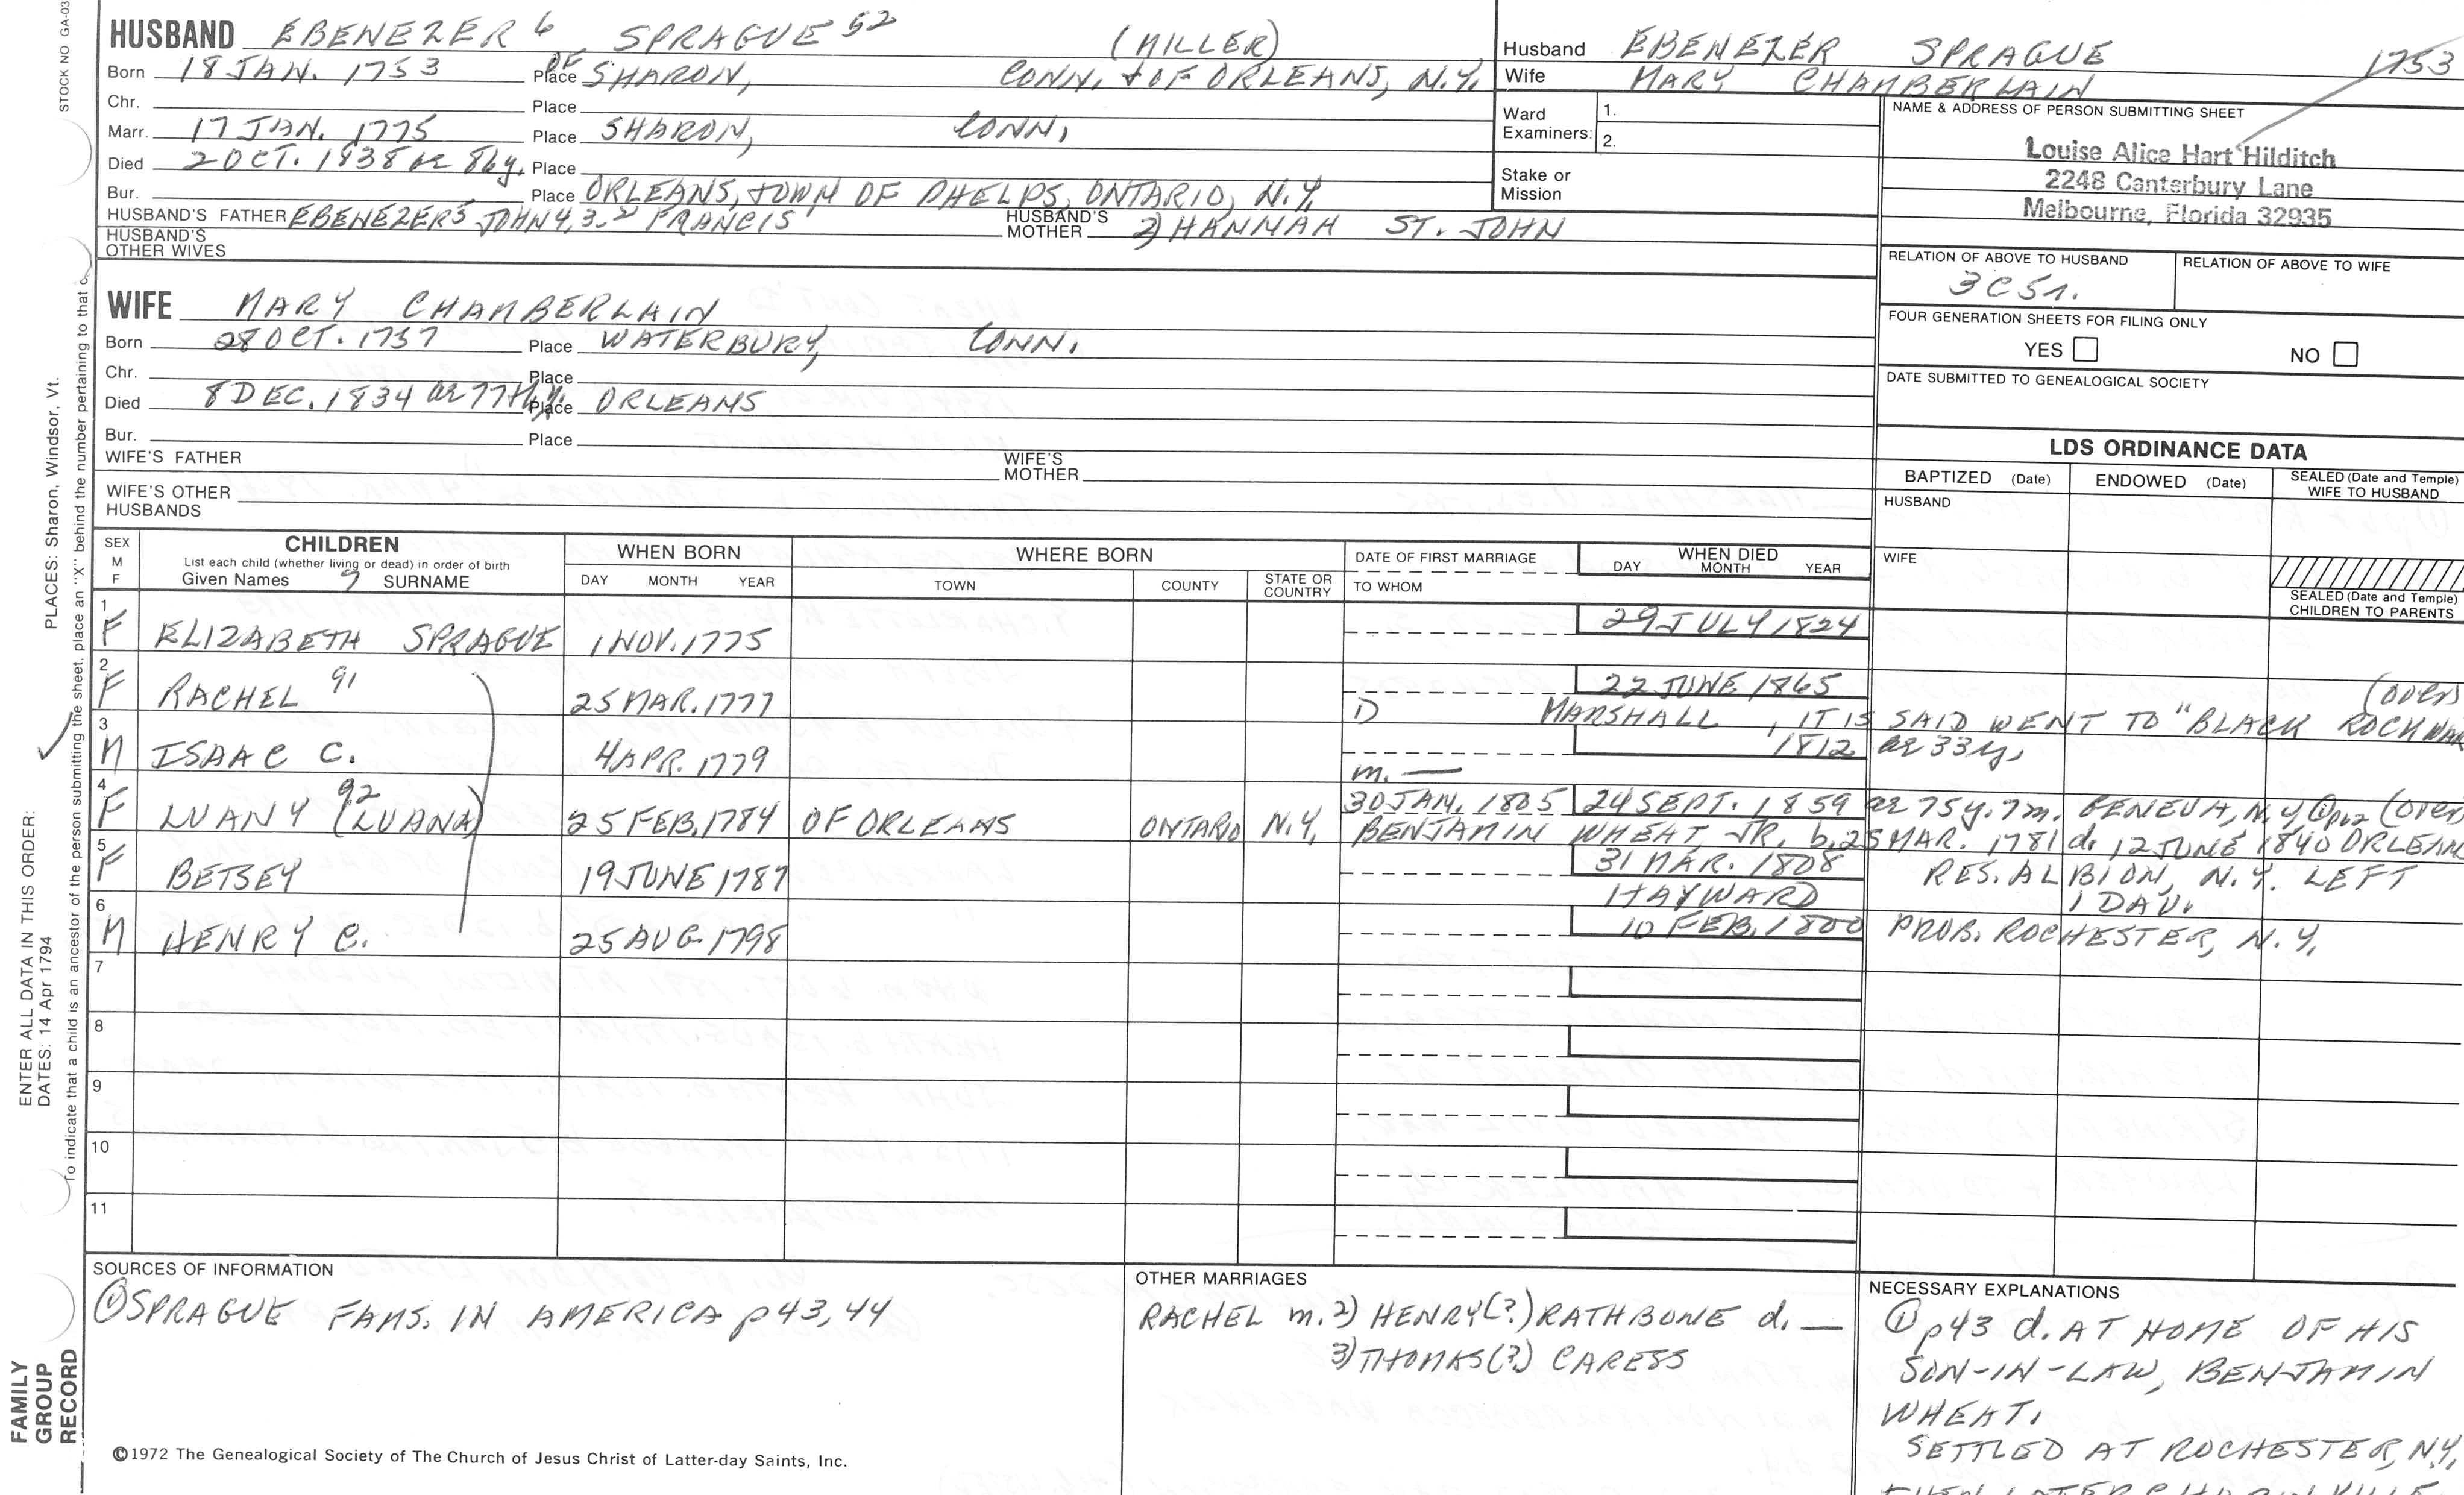 STOCK NO GA-03
HUSBAND EBENEZER 6 SPRAGUE 52 (MILLER)
Born 18 JAN. 1753 Place OF SHARON, CONN. + OF ORLEANS, N.Y.
Chr. Place
Marr. 17 JAN. 1775 Place SHARON, CONN.
Died 2 OCT. 1838 ae 86y. Place
Bur. Place ORLEANS, TOWN OF PHELPS, ONTARIO, N.Y.
HUSBAND'S FATHER EBENEZER5 JOHN 4,3,2 FRANCIS HUSBAND'S MOTHER 2) HANNAH ST. JOHN
HUSBAND'S OTHER WIVES
WIFE MARY CHAMBERLAIN
Born 28 OCT. 1757 Place WATERBURY, CONN.
Chr. Place
Died 8 DEC. 1834 ae 77th y. Place ORLEANS
Bur. Place
WIFE'S FATHER WIFE'S MOTHER
WIFE'S OTHER HUSBANDS
Husband EBENEZER SPRAGUE 1753
Wife MARY CHAMBERLAIN
Ward Examiners: 1.
2.
Stake or Mission
NAME & ADDRESS OF PERSON SUBMITTING SHEET
Louise Alice Hart Hilditch
2248 Canterbury Lane
Melbourne, Florida 32935
RELATION OF ABOVE TO HUSBAND RELATION OF ABOVE TO WIFE
3C5r.
FOUR GENERATION SHEETS FOR FILING ONLY
YES NO
DATE SUBMITTED TO GENEALOGICAL SOCIETY
LDS ORDINANCE DATA
BAPTIZED (Date) ENDOWED (Date) SEALED (Date and Temple) WIFE TO HUSBAND
HUSBAND
WIFE
SEALED (Date and Temple) CHILDREN TO PARENTS
SEX M F
CHILDREN
List each child (whether living or dead) in order of birth
Given Names 7 SURNAME
WHEN BORN
DAY MONTH YEAR
WHERE BORN
TOWN COUNTY STATE OR COUNTRY
DATE OF FIRST MARRIAGE
TO WHOM
WHEN DIED
DAY MONTH YEAR
1 F ELIZABETH SPRAGUE 1 NOV. 1775 29 JULY 1824
2 F RACHEL 91 25 MAR. 1777 22 JUNE 1865 (over)
D MARSHALL, IT IS SAID WENT TO "BLACK ROCK WAR
3 M ISAAC C. 4 APR. 1779 1812 ae 33y.
m. —
4 F LUANY 92 (LUANA) 25 FEB. 1784 OF ORLEANS ONTARIO N.Y. 30 JAN. 1805 24 SEPT. 1859 ae 75y. 7m. GENEVA, N.Y. (over)
BENJAMIN WHEAT, JR. b. 25 MAR. 1781 d. 12 JUNE 1840 ORLEANS
5 F BETSEY 19 JUNE 1787 31 MAR. 1808 RES. ALBION, N.Y. LEFT
HAYWARD 1 DAU.
6 M HENRY C. 25 AUG. 1798 10 FEB. 1800 PROB. ROCHESTER, N.Y.
7
8
9
10
11
SOURCES OF INFORMATION
① SPRAGUE FAMS. IN AMERICA p 43, 44
OTHER MARRIAGES
RACHEL m. 2) HENRY(?) RATHBONE d. —
3) THOMAS(?) CARESS
NECESSARY EXPLANATIONS
① p43 d. AT HOME OF HIS
SON-IN-LAW, BENJAMIN
WHEAT.
SETTLED AT ROCHESTER, N.Y.
THEN LATER
©1972 The Genealogical Society of The Church of Jesus Christ of Latter-day Saints, Inc.
FAMILY GROUP RECORD
ENTER ALL DATA IN THIS ORDER:
DATES: 14 Apr 1794
PLACES: Sharon, Windsor, Vt.
To indicate that a child is an ancestor of the person submitting the sheet, place an "X" behind the number pertaining to that